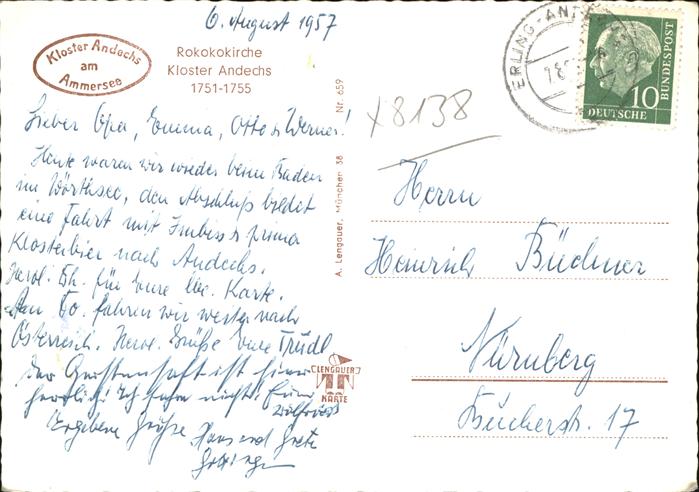 6. August 1957
Kloster Andechs
am
Ammersee
Rokokokirche
Kloster Andechs
1751-1755
Lieber Opa, Emma, Otto & Werner!
Heute waren wir wieder beim Baden
im Wörthsee, den Abschluß bildet
eine Fahrt mit Imbiss & prima
Klosterbier nach Andechs.
Herzl. Dk. für Eure lb. Karte.
Am So. fahren wir weiter nach
Österreich. Herzl. Grüße Eure Trudl
Der Gerstensaft ist hier
herrlich! Ich nicht! Euer
Ergebene Grüße Hans und Grete
Nr. 659
A. Lengauer, München 38
LENGAUER
KARTE
x8138
ERLING-AND
10
DEUTSCHE
BUNDESPOST
Herrn
Heinrich Büchner
Nürnberg
Bucherstr. 17